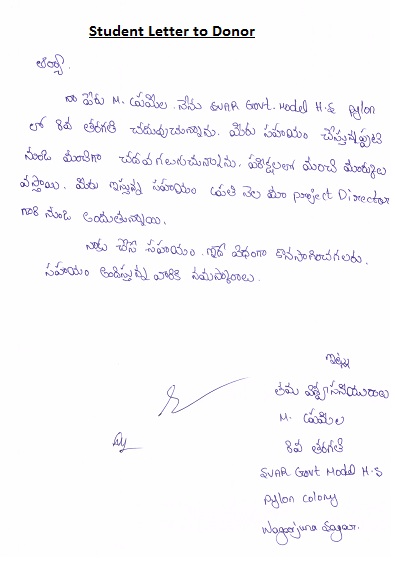 Student Letter to Donor
ఆర్యా.
నా పేరు M. ప్రమీల. నేను SVAR Govt. Model H.S Pylon
లో 8వ తరగతి చదువుచున్నాను. మీరు సహాయం చేస్తున్నప్పటి
నుండి మంచిగా చదువగలుగుచున్నాను. పరీక్షలలో మంచి మార్కులు
వస్తాయి. మీరు ఇస్తున్న సహాయం ప్రతి నెల మా project Director
గారి నుండి అందుతున్నాయి.
నాకు చేసే సహాయం ఇదే విధంగా కొనసాగించగలరు.
సహాయం అందిస్తున్న వారికి నమస్కారాలు.
ఇట్లు
తమ విశ్వాసనీయురాలు
M. ప్రమీల
8వ తరగతి
SVAR Govt Model H.S
Pylon colony
Nagarjuna Sagar.